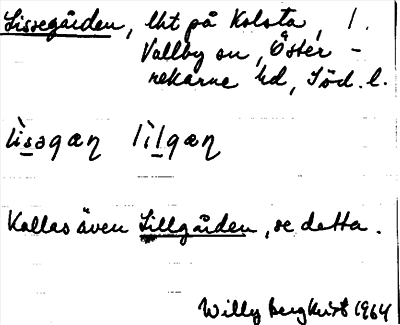 Lissegården, lht på Kolsta, 1.
Vallby sn, Öster-
rekarne hd, Söd. l.
lìsəgæɳ lìlgæɳ
Kallas även Lillgården, se detta.
Willy Bergkvist 1964